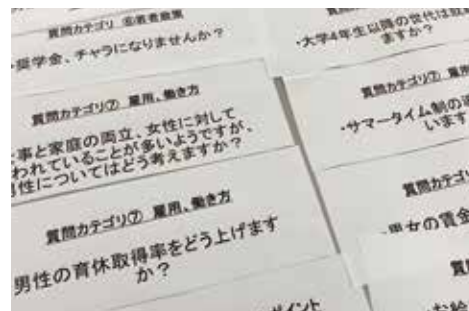 質問カテゴリ ⑥若者政策
・奨学金、チャラになりませんか?
質問カテゴリ⑦ 雇用、働き方
事と家庭の両立、女性に対して
われていることが多いようですが、
性についてはどう考えますか?
質問カテゴリ⑦ 雇用、働き方
男性の育休取得率をどう上げます
か?
・大学4年生以降の世代は
ますか?
質問カテゴリ⑦ 雇用
・サマータイム制の
います
質問カテゴリ
・男女の賃金
質問